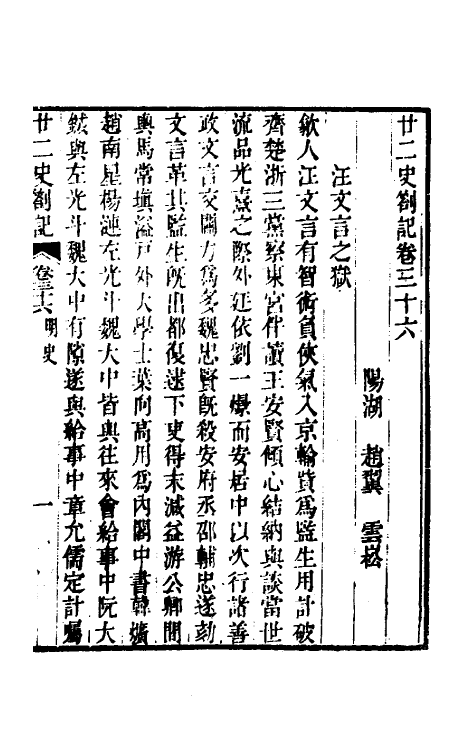 廿二史劄記卷三十六
陽湖　趙翼　雲崧
汪文言之獄
歙人汪文言有智術負俠氣入京輸貲爲監生用計破
齊楚浙三黨察東宮伴讀王安賢傾心結納與談當世
流品光熹之際外廷依劉一燝而安居中以次行諸善
政文言交關力爲多魏忠賢旣殺安府丞邵輔忠遂劾
文言革其監生旣出都復逮下吏得末減益游公卿間
輿馬常塡溢戸外大學士葉向高用爲內閣中書韓爌
趙南星楊漣左光斗魏大中皆與往來會給事中阮大
鋮與左光斗魏大中有隙遂與給事中章允儒定計囑
廿二史劄記
卷三十六 明史
一